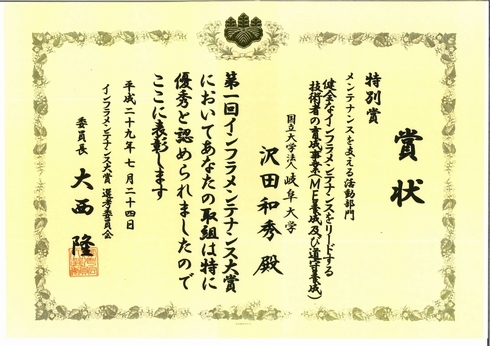 賞状
特別賞
メンテナンスを支える活動部門
健全なインフラメンテナンスをリードする
技術者の育成事業(ME養成及び道守養成)
国立大学法人岐阜大学
沢田和秀 殿
第一回インフラメンテナンス大賞
においてあなたの取組は特に
優秀と認められましたので
ここに表彰します
平成二十九年七月二十四日
インフラメンテナンス大賞 選考委員会
委員長 大西 隆